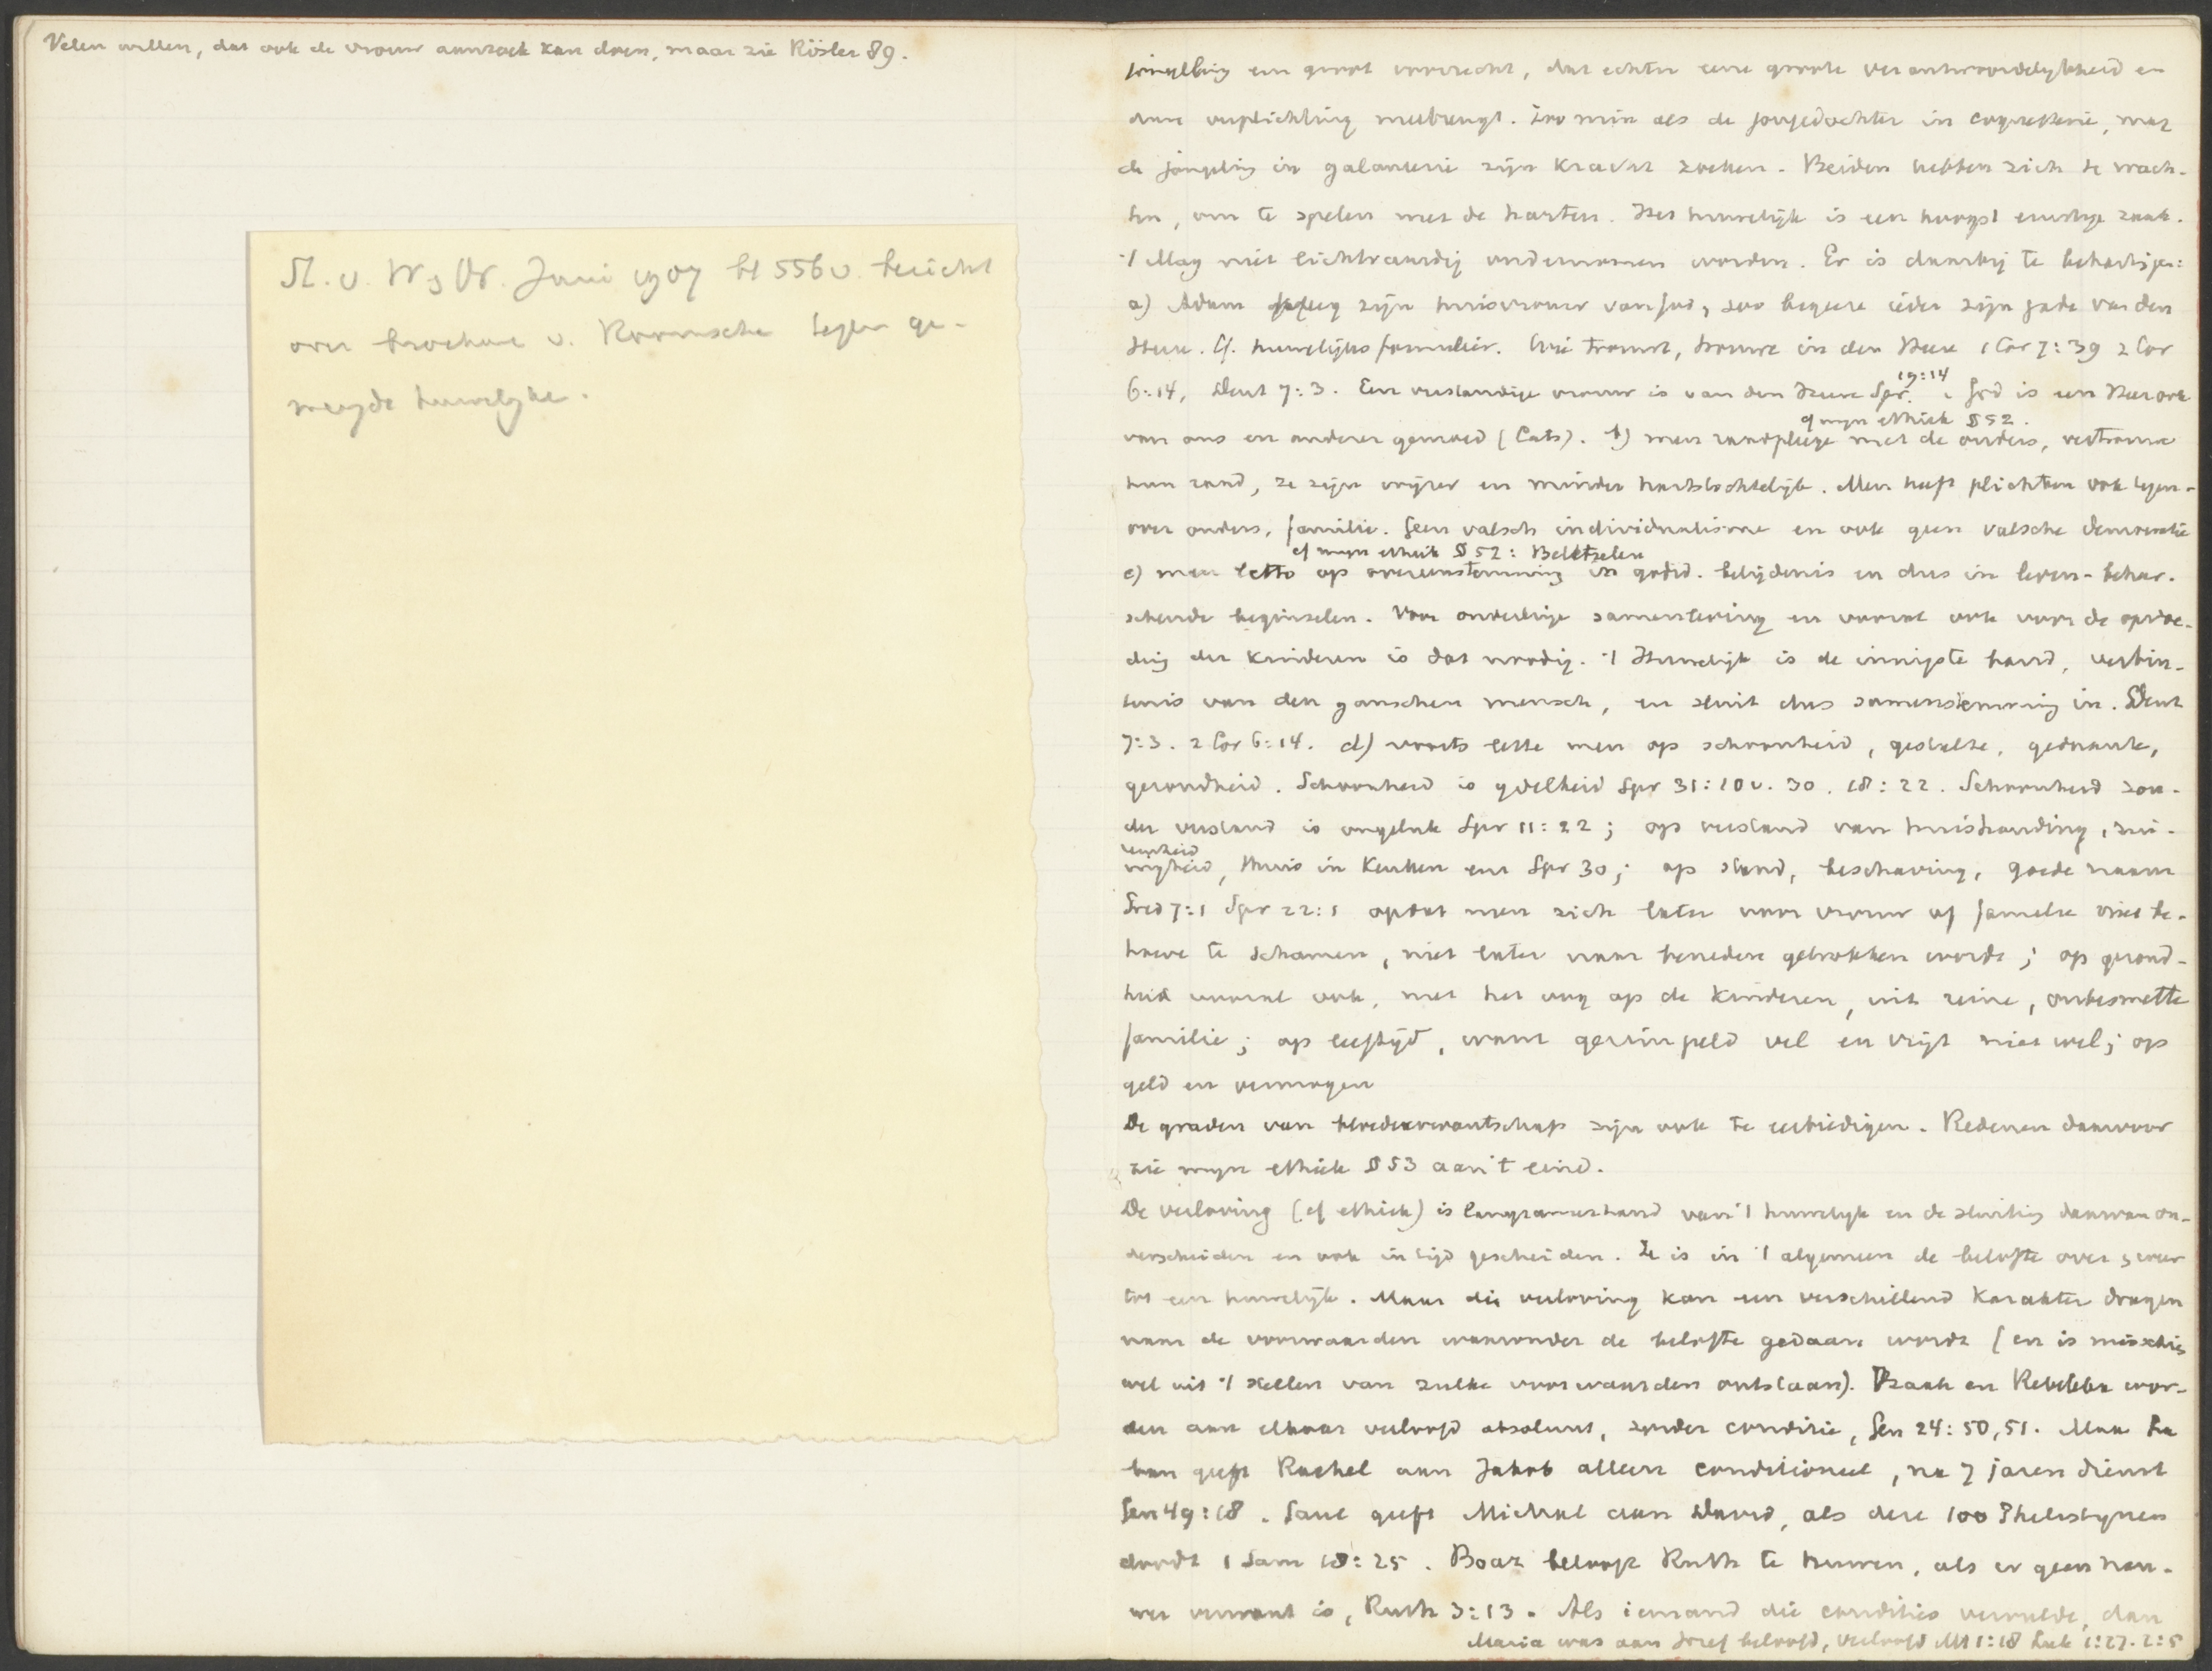 Velen willen, dat ook de vrouw aanzoek kan doen, maar zie Rösler 89.
St. v. W & Vr. Juni 1907 bl 556v. bericht
over brochure v. Roomsche tegen ge-
mengde huwelijke.
jongeling een groot voorrecht, dat echter eene groote verantwoordelykheid en
dure verplichting meebrengt. Zoo min als de jongedochter in coquetterie, mag
de jongeling in galanterie zijn kracht zoeken. Beiden hebben zich te wach-
ten, om te spelen met de harten. Het huwelijk is een hoogst ernstige zaak.
't Mag niet lichtvaardig ondernomen worden. Er is daarbij te behartigen:
a) Adam kreeg zijn huisvrouw van God, zoo begeere ieder zijn gade van den
Heere. Cf. huwelijksformulier. Wie trouwt, trouwe in den Heere 1 Cor 7:39 2 Cor
6:14, Deut 7:3. Een verstandige vrouw is van den Heere Spr. 19:14. God is een Heer ook
cf mijn ethiek § 52.
van ons en anderer gemoed (Cats). b) men raadplege met de ouders, vertrouwe
hun raad, ze zijn wijzer en minder hartstochtelijk. Men heeft plichten ook tegen-
over ouders, familie. Geen valsch individualisme en ook geen valsche democratie
cf mijn ethiek § 52: Beletselen
c) men lette op overeenstemming in godsd. belijdenis en dus in leven-beheer-
schende beginselen. Voor onderlinge samenleving en vooral ook voor de opvoe-
ding der kinderen is dat noodig. 't Huwelijk is de innigste band, verbin-
tenis van den ganschen mensch, en sluit dus samenstemming in. Deut
7:3. 2 Cor 6:14. d) voorts lette men op schoonheid, gestalte, gedaante,
gezondheid. Schoonheid is ydelheid Spr 31:10v. 30. 18:22. Schoonheid zon-
der verstand is ongeluk Spr 11:22; op verstand van huishouding, zui-
nigheid, thuis in keuken enz Spr 30; op stand, beschaving, goede naam
Pred 7:1 Spr 22:1 opdat men zich later voor vrouw of familie niet be-
hoeve te schamen, niet later naar beneden getrokken worde; op gezond-
heid vooral ook, met het oog op de kinderen, uit reine, onbesmette
familie; op leeftijd, want gerimpeld vel en vrijt niet wel; op
geld en vermogen
De graden van bloedverwantschap zijn ook te eerbiedigen. Redenen daarvoor
zie mijn ethiek § 53 aan 't eind.
De verloving (cf ethiek) is langzamerhand van 't huwelyk en de sluiting daarvan on-
derscheiden en ook in tijd gescheiden. Ze is in 't algemeen de belofte over & weer
tot een huwelijk. Maar die verloving kan een verschillend karakter dragen
naar de voorwaarden waaronder de belofte gedaan wordt (en is misschien
wel uit 't stellen van zulke voorwaarden ontstaan). Izaak en Rebekka wor-
den aan elkaar verloofd absoluut, zonder conditie, Gen 24:50,51. Maar La
ban geeft Rachel aan Jakob alleen conditioneel, na 7 jaren dienst
Gen 49:18. Saul geeft Michal aan David, als deze 100 Philistynen
doodt 1 Sam 18:25. Boaz belooft Ruth te huwen, als er geen nau-
wer verwant is, Ruth 3:13. Als iemand die condities vervulde, dan
Maria was aan Jozef beloofd, verloofd Mt 1:18 Luk 1:27. 2:5